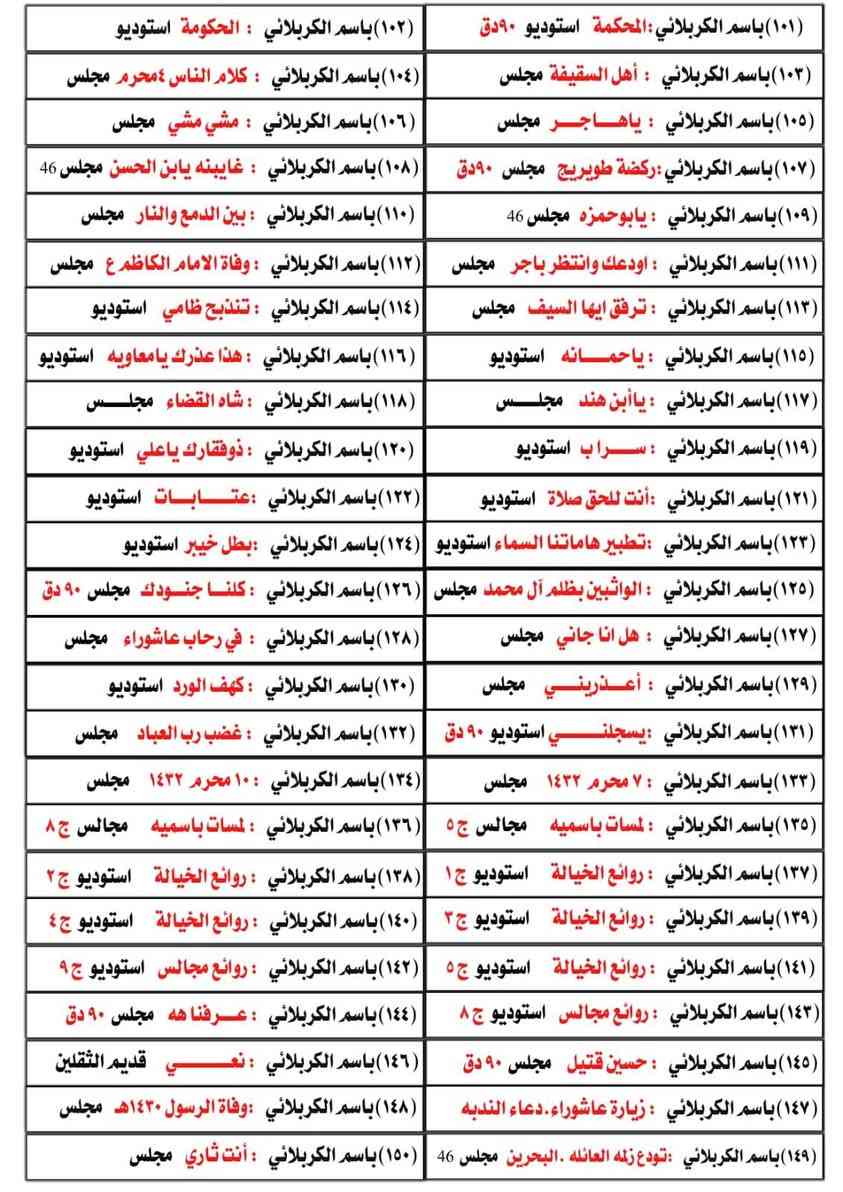 (١٠١)باسم الكربلائي :المحكمة استوديو ٩٠دق
(١٠٢)باسم الكربلائي : الحكومة استوديو
(١٠٣)باسم الكربلائي : أهل السقيفة مجلس
(١٠٤)باسم الكربلائي : كلام الناس ٤محرم مجلس
(١٠٥)باسم الكربلائي : ياهـــاجـــر مجلس
(١٠٦)باسم الكربلائي : مشي مشي مجلس
(١٠٧)باسم الكربلائي :ركضة طويريج مجلس ٩٠دق
(١٠٨)باسم الكربلائي : غايبنه يابن الحسن مجلس 46
(١٠٩)باسم الكربلائي : يابوحمزه مجلس 46
(١١٠)باسم الكربلائي : بين الدمع والنار مجلس
(١١١)باسم الكربلائي : اودعك وانتظر باجر مجلس
(١١٢)باسم الكربلائي : وفاة الامام الكاظم ع مجلس
(١١٣)باسم الكربلائي : ترفق ايها السيف مجلس
(١١٤)باسم الكربلائي : تنذبح ظامي استوديو
(١١٥)باسم الكربلائي : ياحمـــانه استوديو
(١١٦)باسم الكربلائي : هذا عذرك يامعاويه استوديو
(١١٧)باسم الكربلائي : ياأبن هند مجلـــس
(١١٨)باسم الكربلائي : شاه القضاء مجلـــس
(١١٩)باسم الكربلائي : ســـرا ب استوديو
(١٢٠)باسم الكربلائي : ذوفقارك ياعلي استوديو
(١٢١)باسم الكربلائي :أنت للحق صلاة استوديو
(١٢٢)باسم الكربلائي :عتـــابـــات استوديو
(١٢٣)باسم الكربلائي :تطبير هاماتنا السماء استوديو
(١٢٤)باسم الكربلائي :بطل خيبر استوديو
(١٢٥)باسم الكربلائي : الواثبين بظلم آل محمد مجلس
(١٢٦)باسم الكربلائي : كلنـا جنـودك مجلس ٩٠ دق
(١٢٧)باسم الكربلائي : هل انا جاني مجلس
(١٢٨)باسم الكربلائي : في رحاب عاشوراء مجلس
(١٢٩)باسم الكربلائي : أعـــذرينـــي مجلس
(١٣٠)باسم الكربلائي : كهف الورد استوديو
(١٣١)باسم الكربلائي :يسجلنـــــي استوديو ٩٠ دق
(١٣٢)باسم الكربلائي : غضب رب العباد مجلس
(١٣٣)باسم الكربلائي : ٧ محرم ١٤٣٢ مجلس
(١٣٤)باسم الكربلائي : ١٠ محرم ١٤٣٢ مجلس
(١٣٥)باسم الكربلائي : لمسات باسميه مجالس ج ٥
(١٣٦)باسم الكربلائي : لمسات باسميه مجالس ج ٨
(١٣٧)باسم الكربلائي : روائع الخيالة استوديو ج ١
(١٣٨)باسم الكربلائي : روائع الخيالة استوديو ج ٢
(١٣٩)باسم الكربلائي : روائع الخيالة استوديو ج ٣
(١٤٠)باسم الكربلائي : روائع الخيالة استوديو ج ٤
(١٤١)باسم الكربلائي : روائع الخيالة استوديو ج ٥
(١٤٢)باسم الكربلائي : روائع مجالس استوديو ج ٩
(١٤٣)باسم الكربلائي : روائع مجالس استوديو ج ٨
(١٤٤)باسم الكربلائي : عـــرفنا هه مجلس ٩٠ دق
(١٤٥)باسم الكربلائي : حسين قتيل مجلس ٩٠ دق
(١٤٦)باسم الكربلائي : نعـــــي قديم الثقلين
(١٤٧)باسم الكربلائي : زيارة عاشوراء.دعاء الندبه
(١٤٨)باسم الكربلائي :وفاة الرسول ١٤٣٠هـ مجلس
(١٤٩)باسم الكربلائي :تودع زلمه العائله .البحرين مجلس 46
(١٥٠)باسم الكربلائي : أنت ثاري مجلس